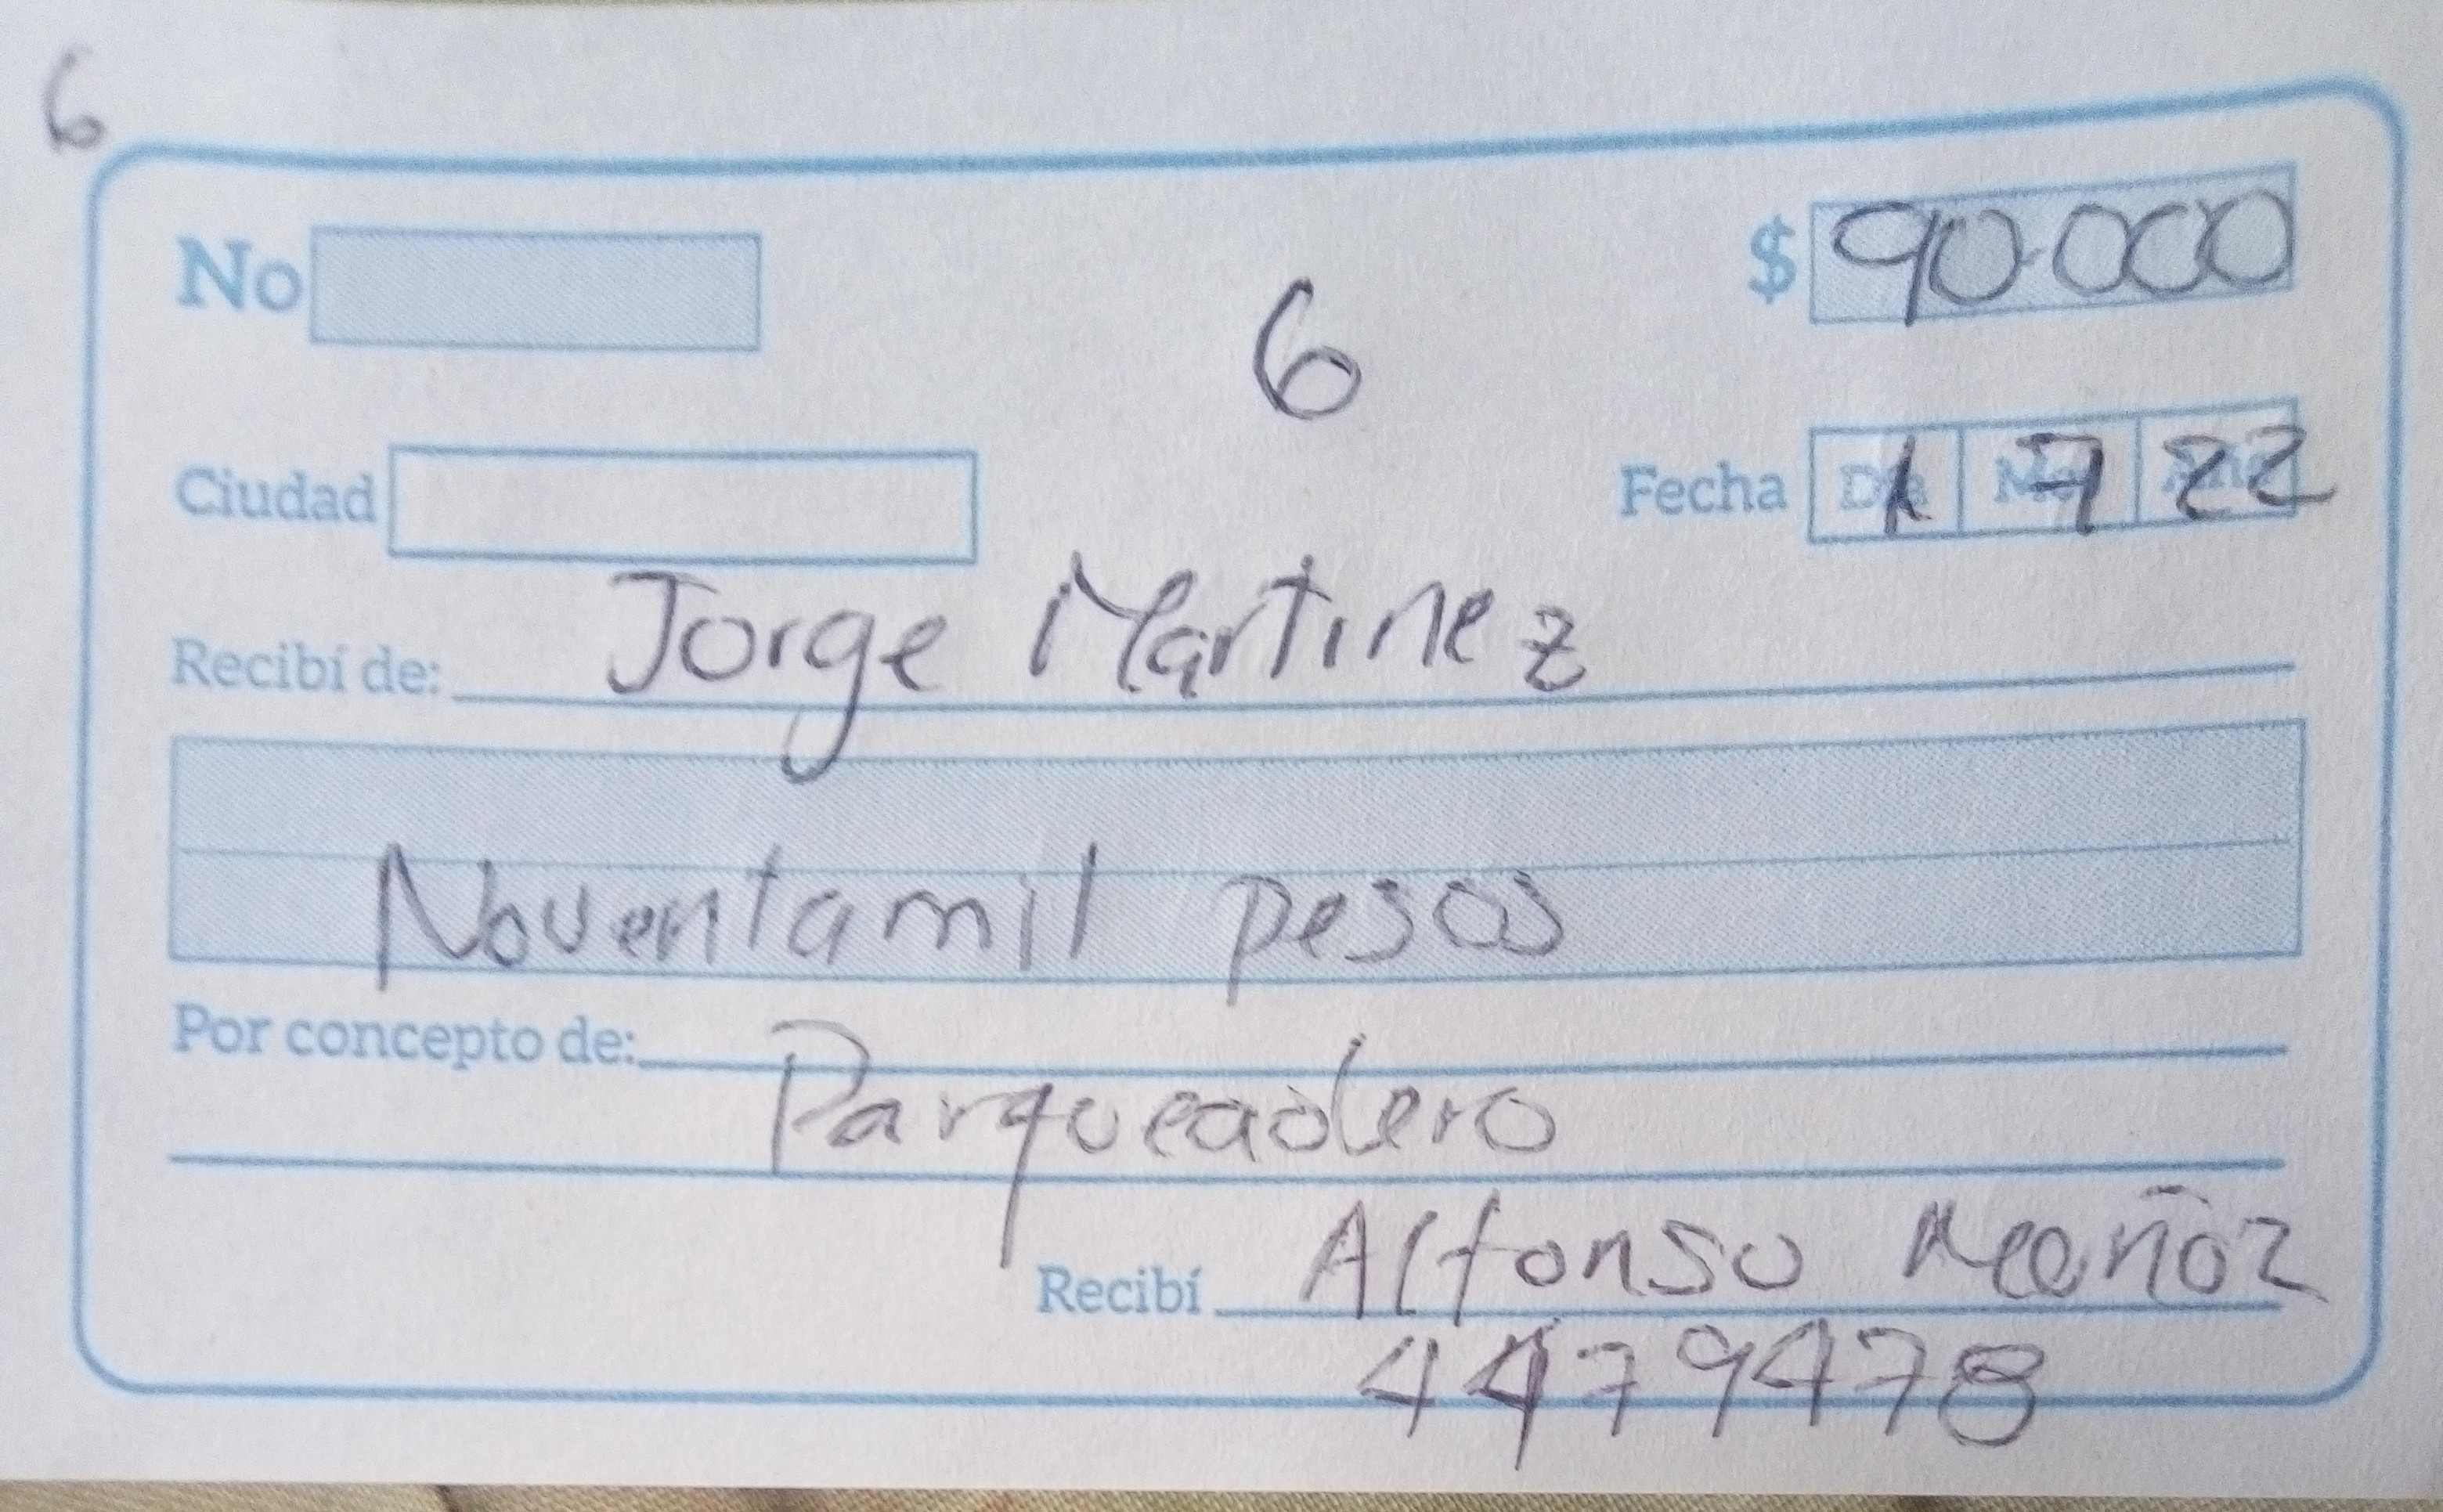 6
No
$ 90.000
6
Ciudad
Fecha Día 1 Mes 7 Año 22
Recibí de: Jorge Martinez
Noventamil pesos
Por concepto de:
Parqueadero
Recibí Alfonso Muñoz
4479478